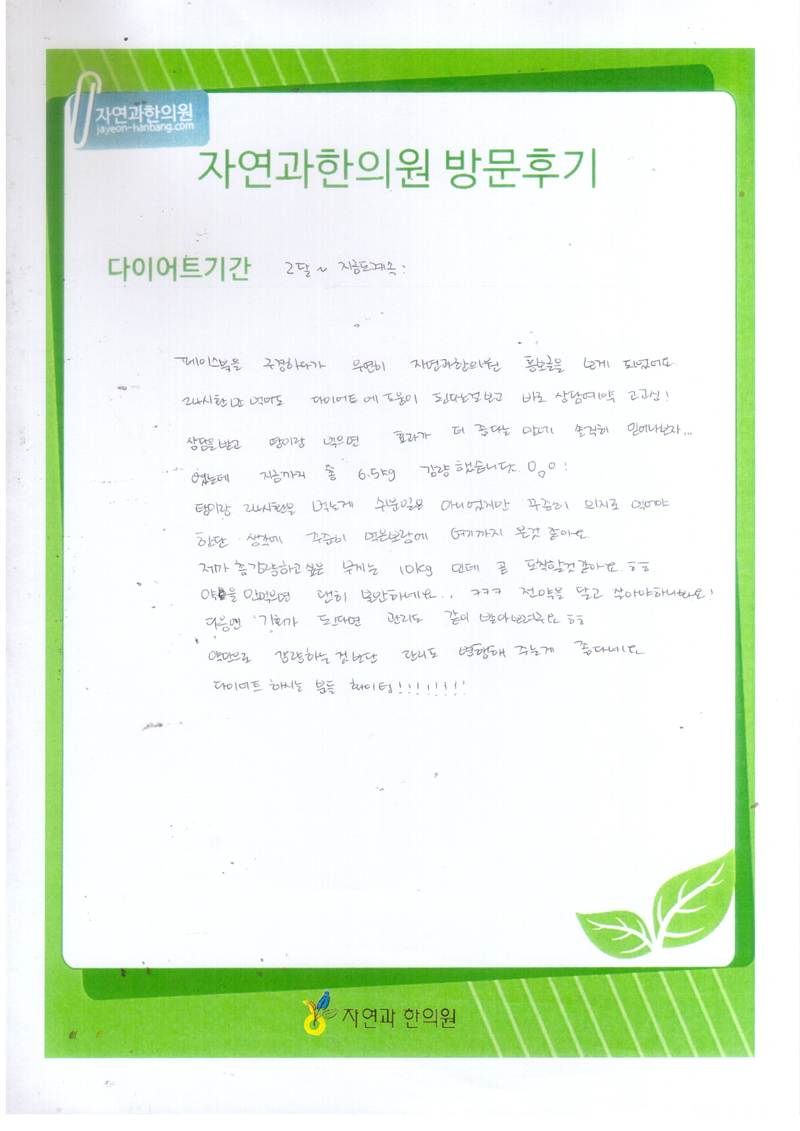 자연과한의원
jayeon-hanbang.com
자연과한의원 방문후기
다이어트기간 2달 ~ 지금도계속!
페이스북을 구경하다가 우연히 자연과한의원 홍보글을 보게 되었어요
다이어트에 도움이 된다는걸보고 바로 상담예약 고고싱!
상담을받고 탕이랑 먹으면 효과가 더 좋다는 말에 솔직히 믿어나보자...
였는데 지금까지 총 6.5kg 감량했습니다. O_O!
탕이랑 먹는게 쉬운일은 아니었지만 꾸준히 의지로 먹어야
한단 생각에 꾸준히 먹은보람에 여기까지 온것 같아요.
제가 총감량하고 싶은 무게는 10kg 인데 곧 도착할것같아요 ㅎㅎ
약을 안먹으면 괜히 불안하네요.. ㅋㅋㅋ 전 약을 달고 살아야하나봐요!
다음엔 기회가 된다면 관리도 같이 받아보려구요 ㅎㅎ
약만으로 감량하는 것보단 관리도 병행해 주는게 좋다네요
다이어트 하시는 분들 화이팅!!!!!!!!
자연과 한의원